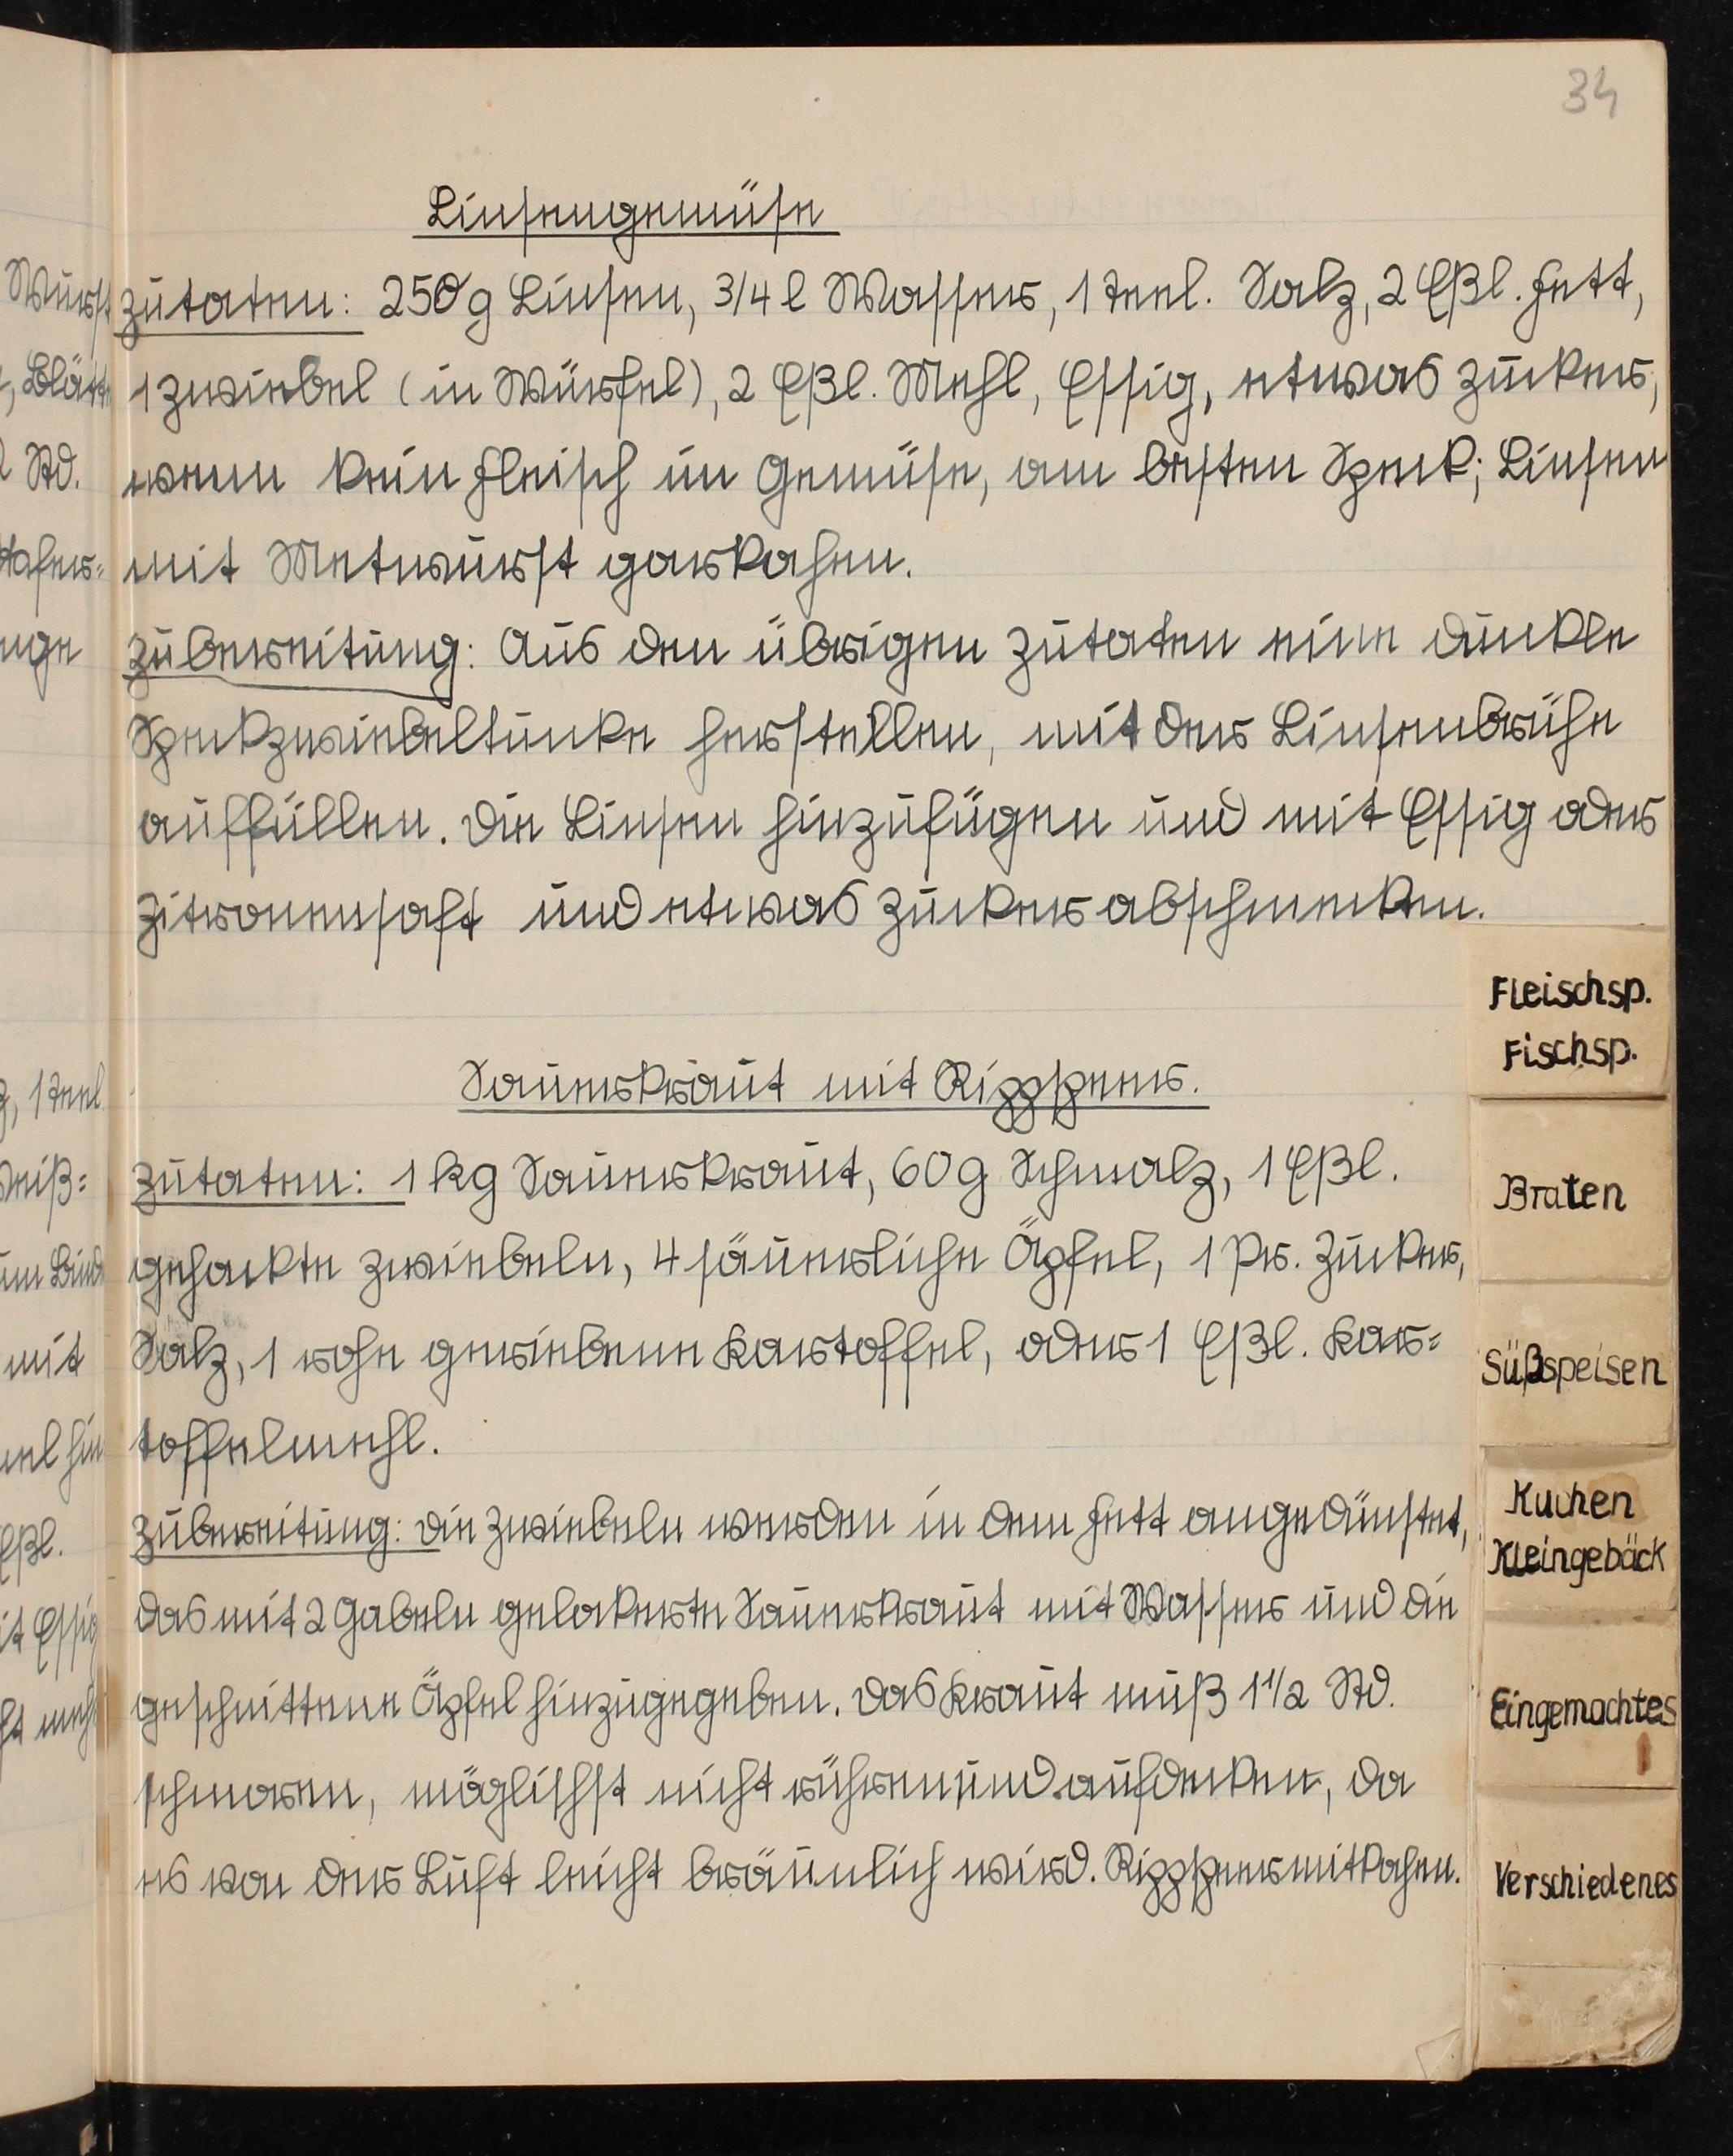 34
Linsengemüse
Zutaten: 250 g Linsen, 3/4 l Wasser, 1 Teel. Salz, 2 Eßl. Fett,
1 Zwiebel (in Würfel), 2 Eßl. Mehl, Essig, etwas Zucker,
wenn kein Fleisch im Gemüse, am besten Speck; Linsen
mit Metwurst garkochen.
Zubereitung: Aus den übrigen Zutaten eine dunkle
Speckzwiebeltunke herstellen, mit der Linsenbrühe
auffüllen. Die Linsen hinzufügen und mit Essig oder
Zitronensaft und etwas Zucker abschmecken.
Sauerkraut mit Rippspeer.
Zutaten: 1 kg Sauerkraut, 60 g Schmalz, 1 Eßl.
gehackte Zwiebeln, 4 säuerliche Äpfel, 1 Pr. Zucker,
Salz, 1 rohe geriebene Kartoffel, oder 1 Eßl. Kar=
toffelmehl.
Zubereitung: Die Zwiebeln werden in dem Fett angedünstet,
das mit 2 Gabeln gelockerte Sauerkraut mit Wasser und die
geschnittene Äpfel hinzugegeben. Das Kraut muß 1 1/2 Std.
schmoren, möglichst nicht rühren und aufdecken, da
es von der Luft leicht bräunlich wird. Rippspeer mitkochen.
Fleischsp.
Fischsp.
Braten
Süßspeisen
Kuchen
Kleingebäck
Eingemachtes
Verschiedenes
Wurst
Std.
mit
Eßl.